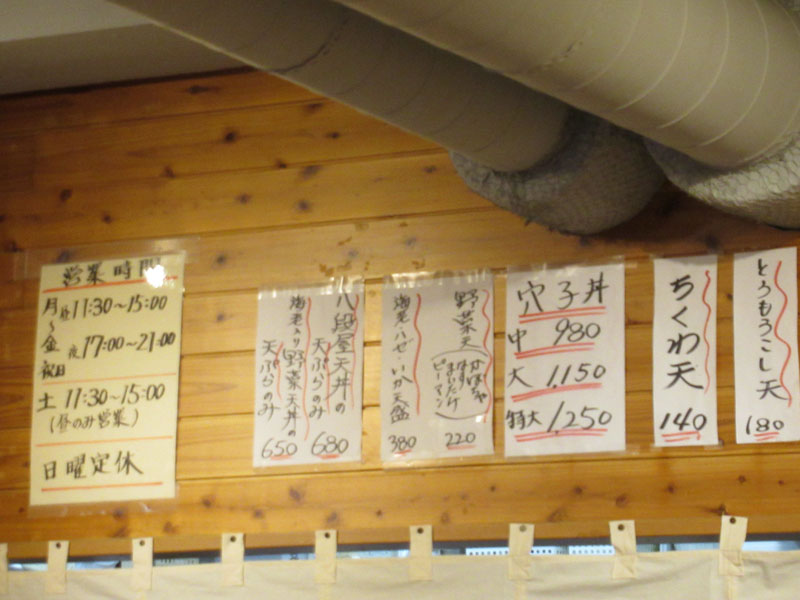 営業時間
月〜金 祝日
昼 11:30〜15:00
夜 17:00〜21:00
土 11:30〜15:00
(昼のみ営業)
日曜定休
八段屋天丼の
天ぷらのみ
680
海老入り野菜天丼の
天ぷらのみ
650
野菜天
(かぼちゃ
なす
まいたけ
ピーマン)
220
海老・ハゼ・いか天盛
380
穴子丼
中 980
大 1,150
特大 1,250
ちくわ天
140
とうもろこし天
180